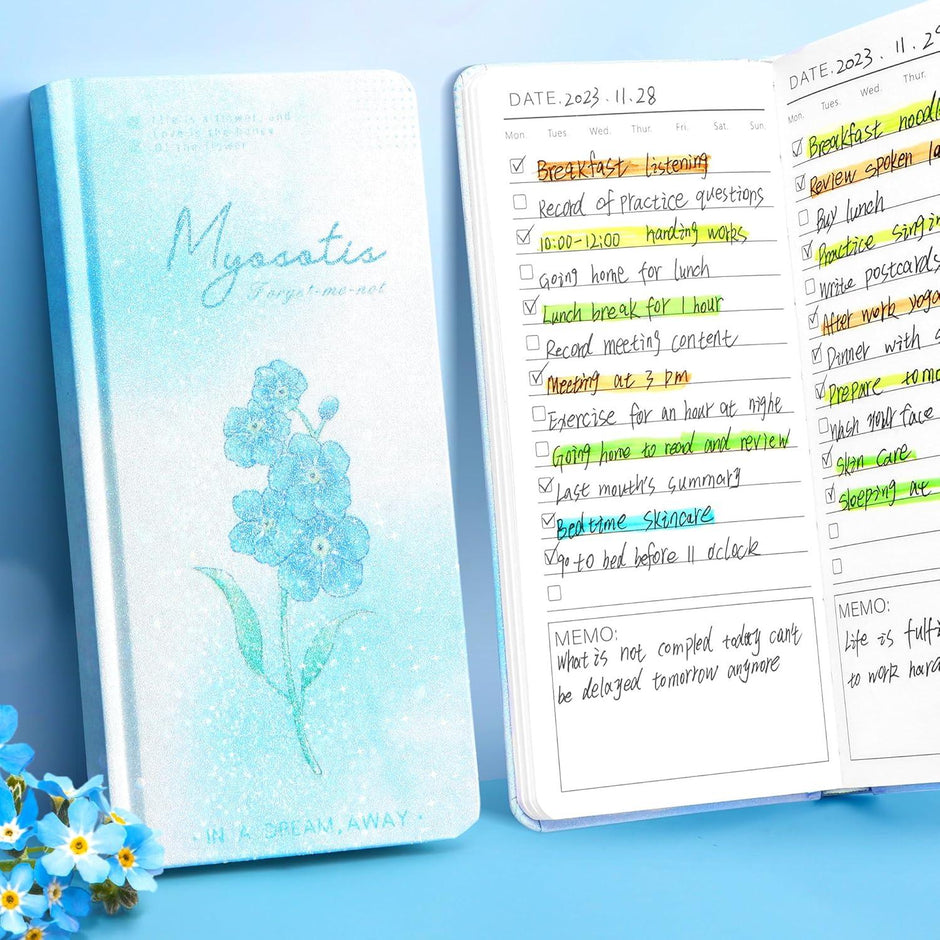 Life is a flower, and
Love is the honey
Of the flower
Myosotis
Forget-me-not
· IN A DREAM, AWAY ·
DATE. 2023. 11. 28
Mon. Tues. Wed. Thur. Fri. Sat. Sun.
Breakfast listening
Record of practice questions
10:00-12:00 harding works
Going home for lunch
Lunch break for 1 hour
Record meeting content
Meeting at 3 pm
Exercise for an hour at night
Going home to read and review
Last mouth's summary
Bedtime skincare
go to bed before 11 o'clock
MEMO:
What is not compled today can't
be delayed tomorrow anymore
DATE. 2023. 11. 29
Mon. Tues. Wed. Thur.
Breakfast noodle
Review spoken
Buy lunch
Practice singin
Write postcards
After work yoga
Dinner with
Prepare tomo
Wash your face
Skin care
Sleeping at
MEMO:
Life is
to work hard